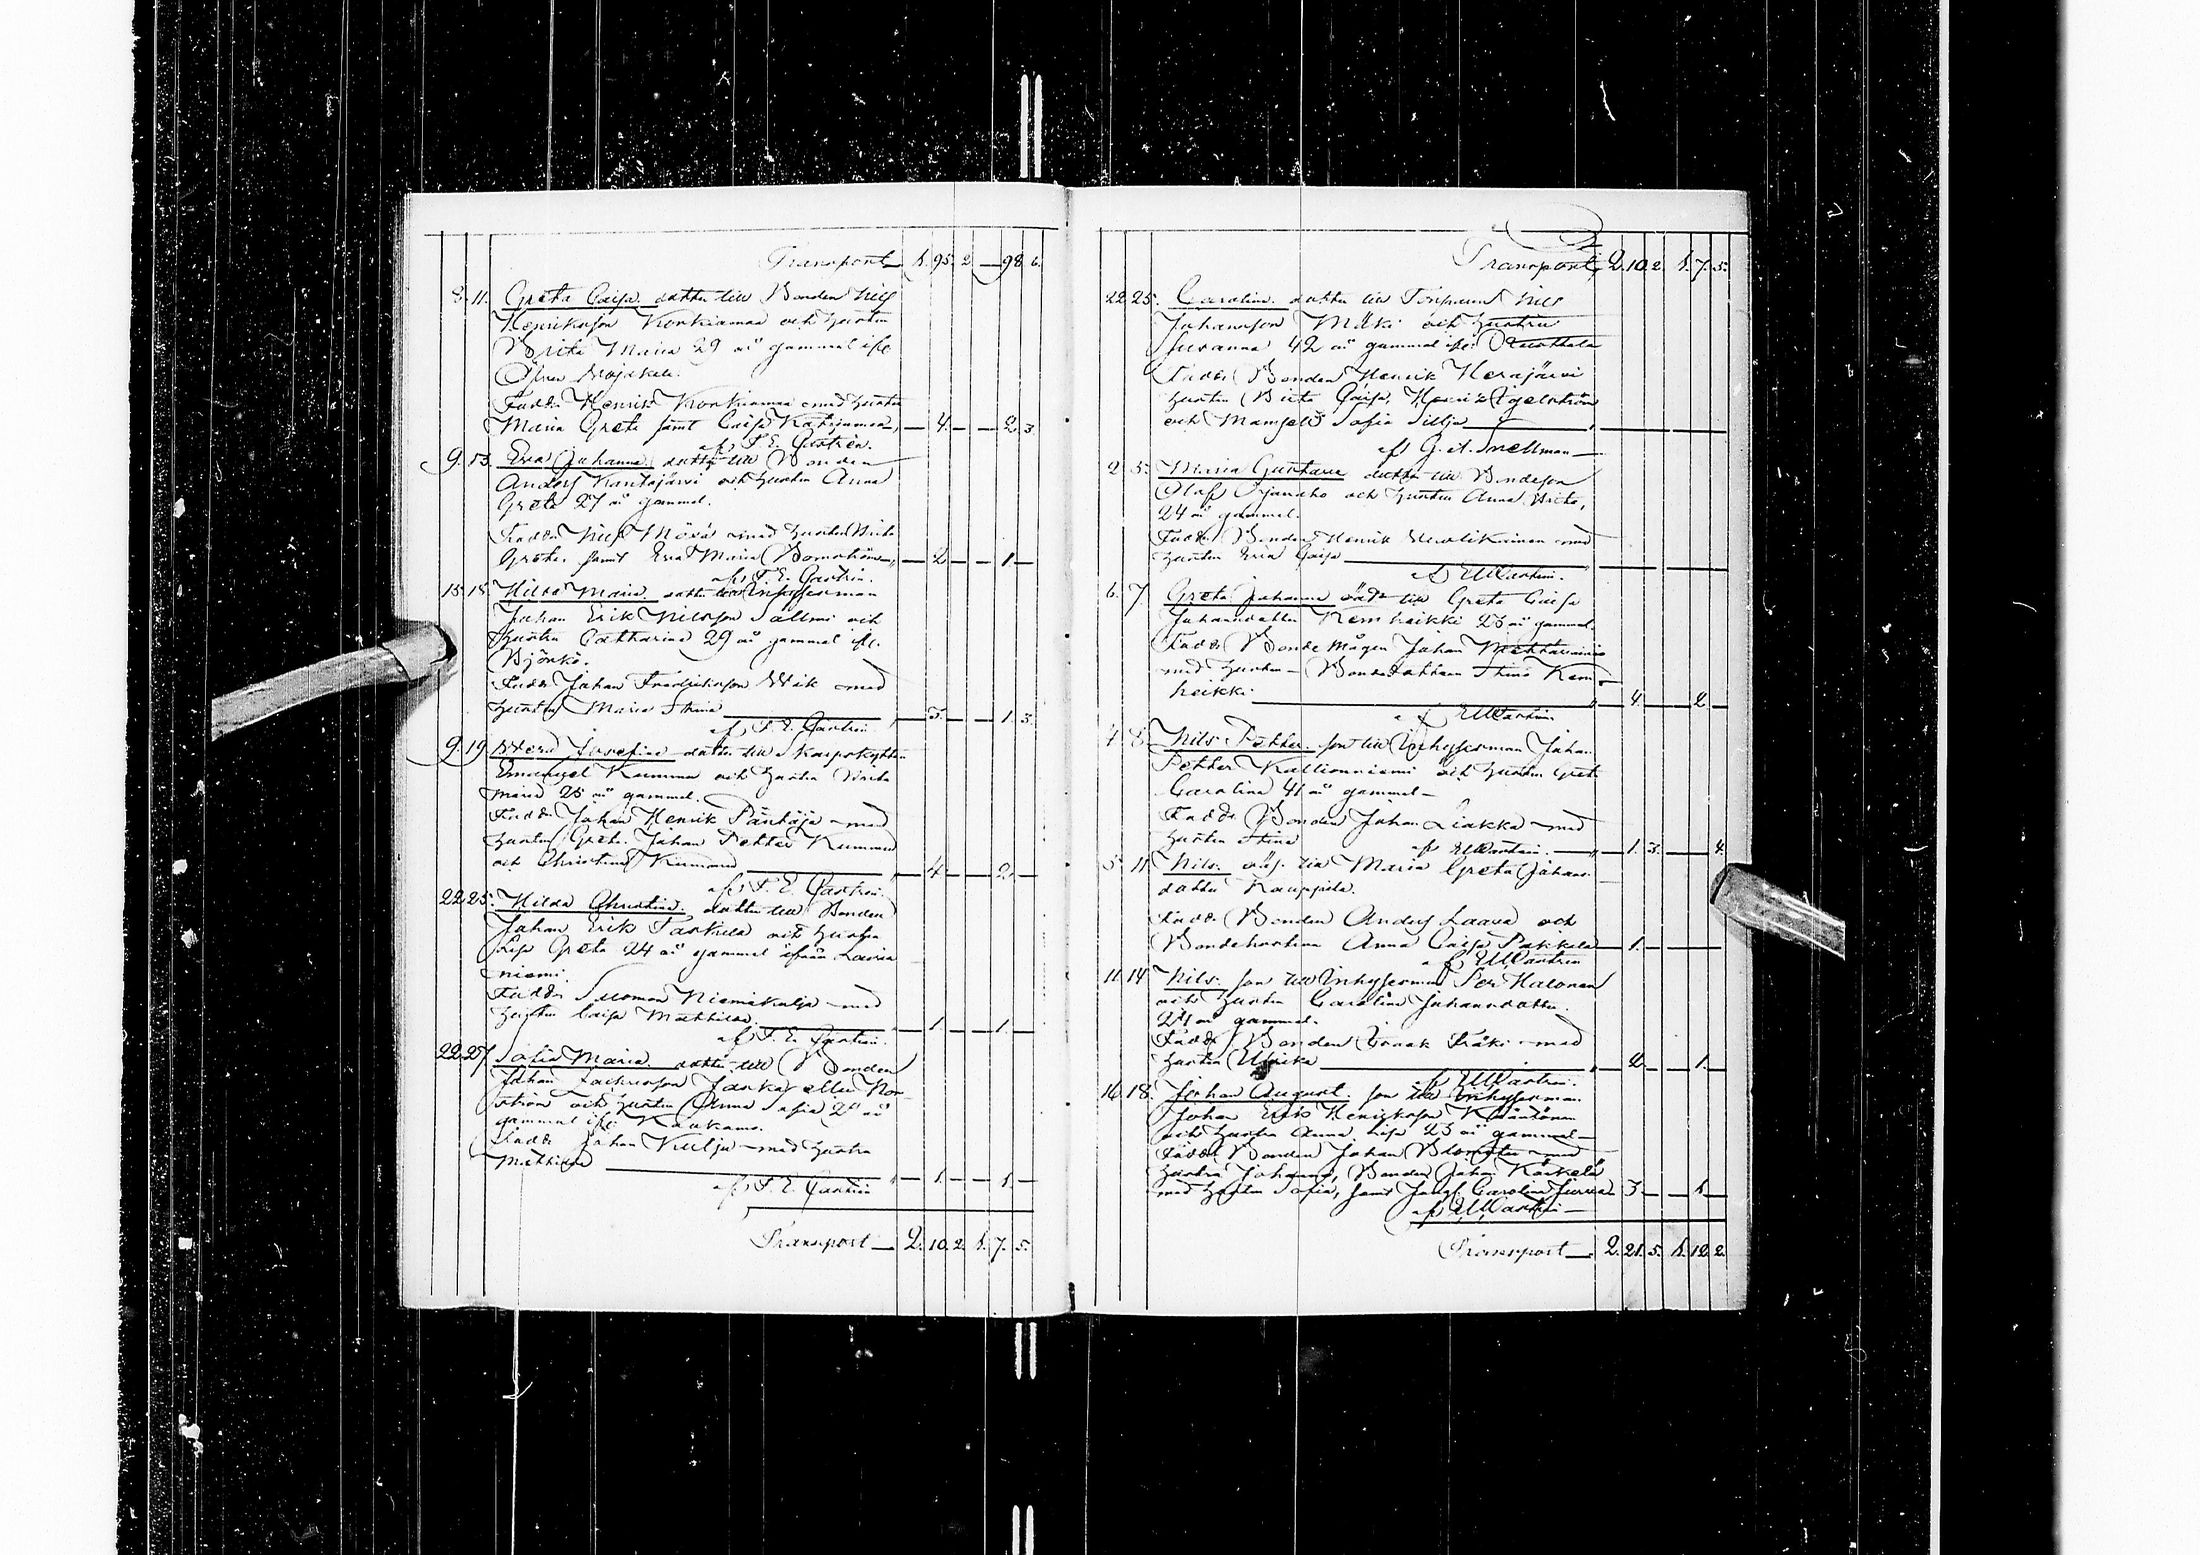 Transport 1. 95. 2 — 98. 6.
3. 11. Greta Caisa dotter till Bonden Nils
Henriksson Korkiamaa och hustru
Brita Maria 29 år gammal ifr.
Öfver
Fadd. Henrik Korkiamaa med hustru
Maria Greta samt Caisa — 4. — — 2. 3.
af F. E. Castrén.
9. 13. Eva Johanna dotter till Bonden
Anders Kantojärvi och hustru Anna
Greta 27 år gammal.
Fadd. Nils med hustru Brita
Greta samt Eva Maria — 2 — — 1 —
af F. E. Castrén.
15. 18. Hilda Maria dotter till Inhysesman
Johan Erik Nilsson Salmi och
hustru Catharina 29 år gammal ifr.
Björkö.
Fadd. Johan Fredriksson Wik med
hustru Maria Stina — 3. — — 1. 3.
af F. E. Castrén
9. 19. Josefina dotter till
Emanuel Kumma och hustru Brita
Maria 25 år gammal.
Fadd. Johan Henrik med
hustru Greta. Johan Petter Kumma
och Christina Kumma — 4 — — 2. —
af F. E. Castrén.
22. 25. Hilda Christina dotter till Bonden
Johan Erik och hustru
Lisa Greta 24 år gammal ifrån Lavia
niemi.
Fadd. Suomon med
hustru Caisa Mathilda — 1. — — 1. —
af F. E. Castrén.
22. 27. Sofia Maria dotter till Bonden
Johan
och hustru Anna Sofia år
gammal ifr. Kaakamo.
Fadd. Johan med hustru
Mathilda — 1. — — 1. —
af F. E. Castrén
Transport — 2. 10. 2. 1. 7. 5.
Transport, 2. 10. 2. 1. 7. 5.
22. 25. Carolina dotter till Nils
Johansson Mäki och hustru
Susanna 42 år gammal ifr.
Fadd. Bonden Henrik Herajärvi
hustru Brita Caisa,
och Mamsell Sofia
af G. A. Snellman —
2. 5. Maria Gustava dotter till Bondeson
Olaf och hustru Anna Brita,
24 år gammal.
Fadd. Bonden Henrik med
hustru Eva Caisa
af EMCastrén.
6. 7. Greta Johanna till Greta Caisa
Johansdotter Kemiheikki 23 år gammal.
Fadd. Bonde mågen Johan
med hustru — Bondedottern Stina Kem-
heikki. — 4. — — 2. —
af EMCastrén.
4. 8. Nils Petter son till Inhysesman Johan
Petter Kallionniemi och hustru Greta
Carolina 41 år gammal —
Fadd. Bonden Johan Liakka med
hustru Stina af EMCastrén. — 1. 3. — — 4.
5. 11. Nils till Maria Greta Johans
dotter Kauppila.
Fadd. Bonden Anders Laava och
Bondehustrun Anna Caisa Pakkala — 1. —
af EMCastrén
11. 14. Nils son till Inhysesman Per Halonen
och hustru Carolina Johansdotter
24 år gammal.
Fadd. Bonden Isaak med
hustru Ulrika — 2. — — 1. —
af EMCastrén.
16. 18. Johan August son till Inhysesman
Johan Erik Henriksson
och hustru Anna Lisa 23 år gammal —
Fadd. Bonden Johan med
hustru Johanna, Bonden Johan
med hustru Sofia, samt Carolina 3 — — 1 —
af EMCastrén —
Transport — 2. 21. 5. 1. 12. 2.